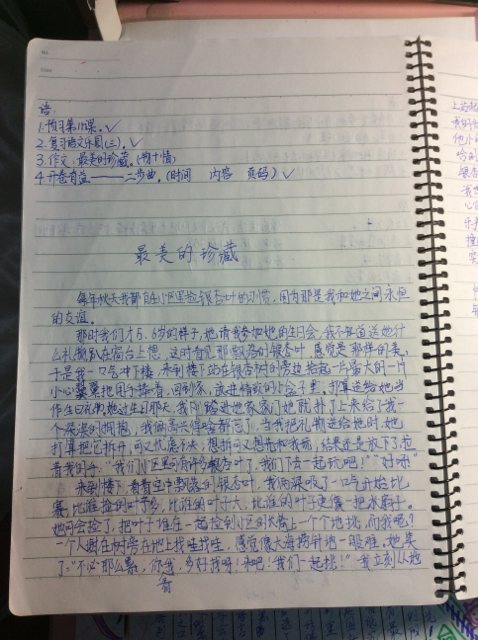 语:
1.预习第11课。✓
2.复习语文乐园(三)。✓
3.作文:最美的珍藏。( 情)
4.开卷有益——二步曲。(时间 内容 页码)✓
最美的珍藏
每年秋天我都有在小区里捡银杏叶的习惯,因为那是我和她之间永恒
的友谊。
那时我们才5、6岁的样子,她请我参加她的生日会,我不知道送她什
么礼物趴在窗台上想,这时看见那飘落的银杏叶感觉是那样的美,
于是我一口气冲下楼,来到楼下站在银杏树的旁边拾起一片蛮大的一片
小心翼翼地用手捧着,回到家,放进精致的小盒子里,打算送给她当
作生日礼物她过生日那天,我刚踏进她家家门她就扑了上来给了我一
个深深的拥抱,我俩高兴得啥都忘了。当我把礼物送给她时,她
打算把它拆开,可又忧虑不决,想拆可又想先和我玩,结果还是放下了拉
着我的手,“我们小区里可有许多银杏叶了,我们下去一起玩吧!”“好呀”
来到楼下,看着空中飘落的银杏叶,我俩深吸了一口气开始比
赛,比谁捡的叶子多,比谁的叶子大,比谁的叶子更像一把小扇子。
她可会捡了,把叶子堆在一起捡到小区的长椅上一个个地挑,而我呢?
一个人蹲在树旁在地上找哇找哇,感觉像大海捞针池一般难。她笑
了:“不必那么累,你 , 多好找呀!来吧!我们一起捡!”我立刻从地